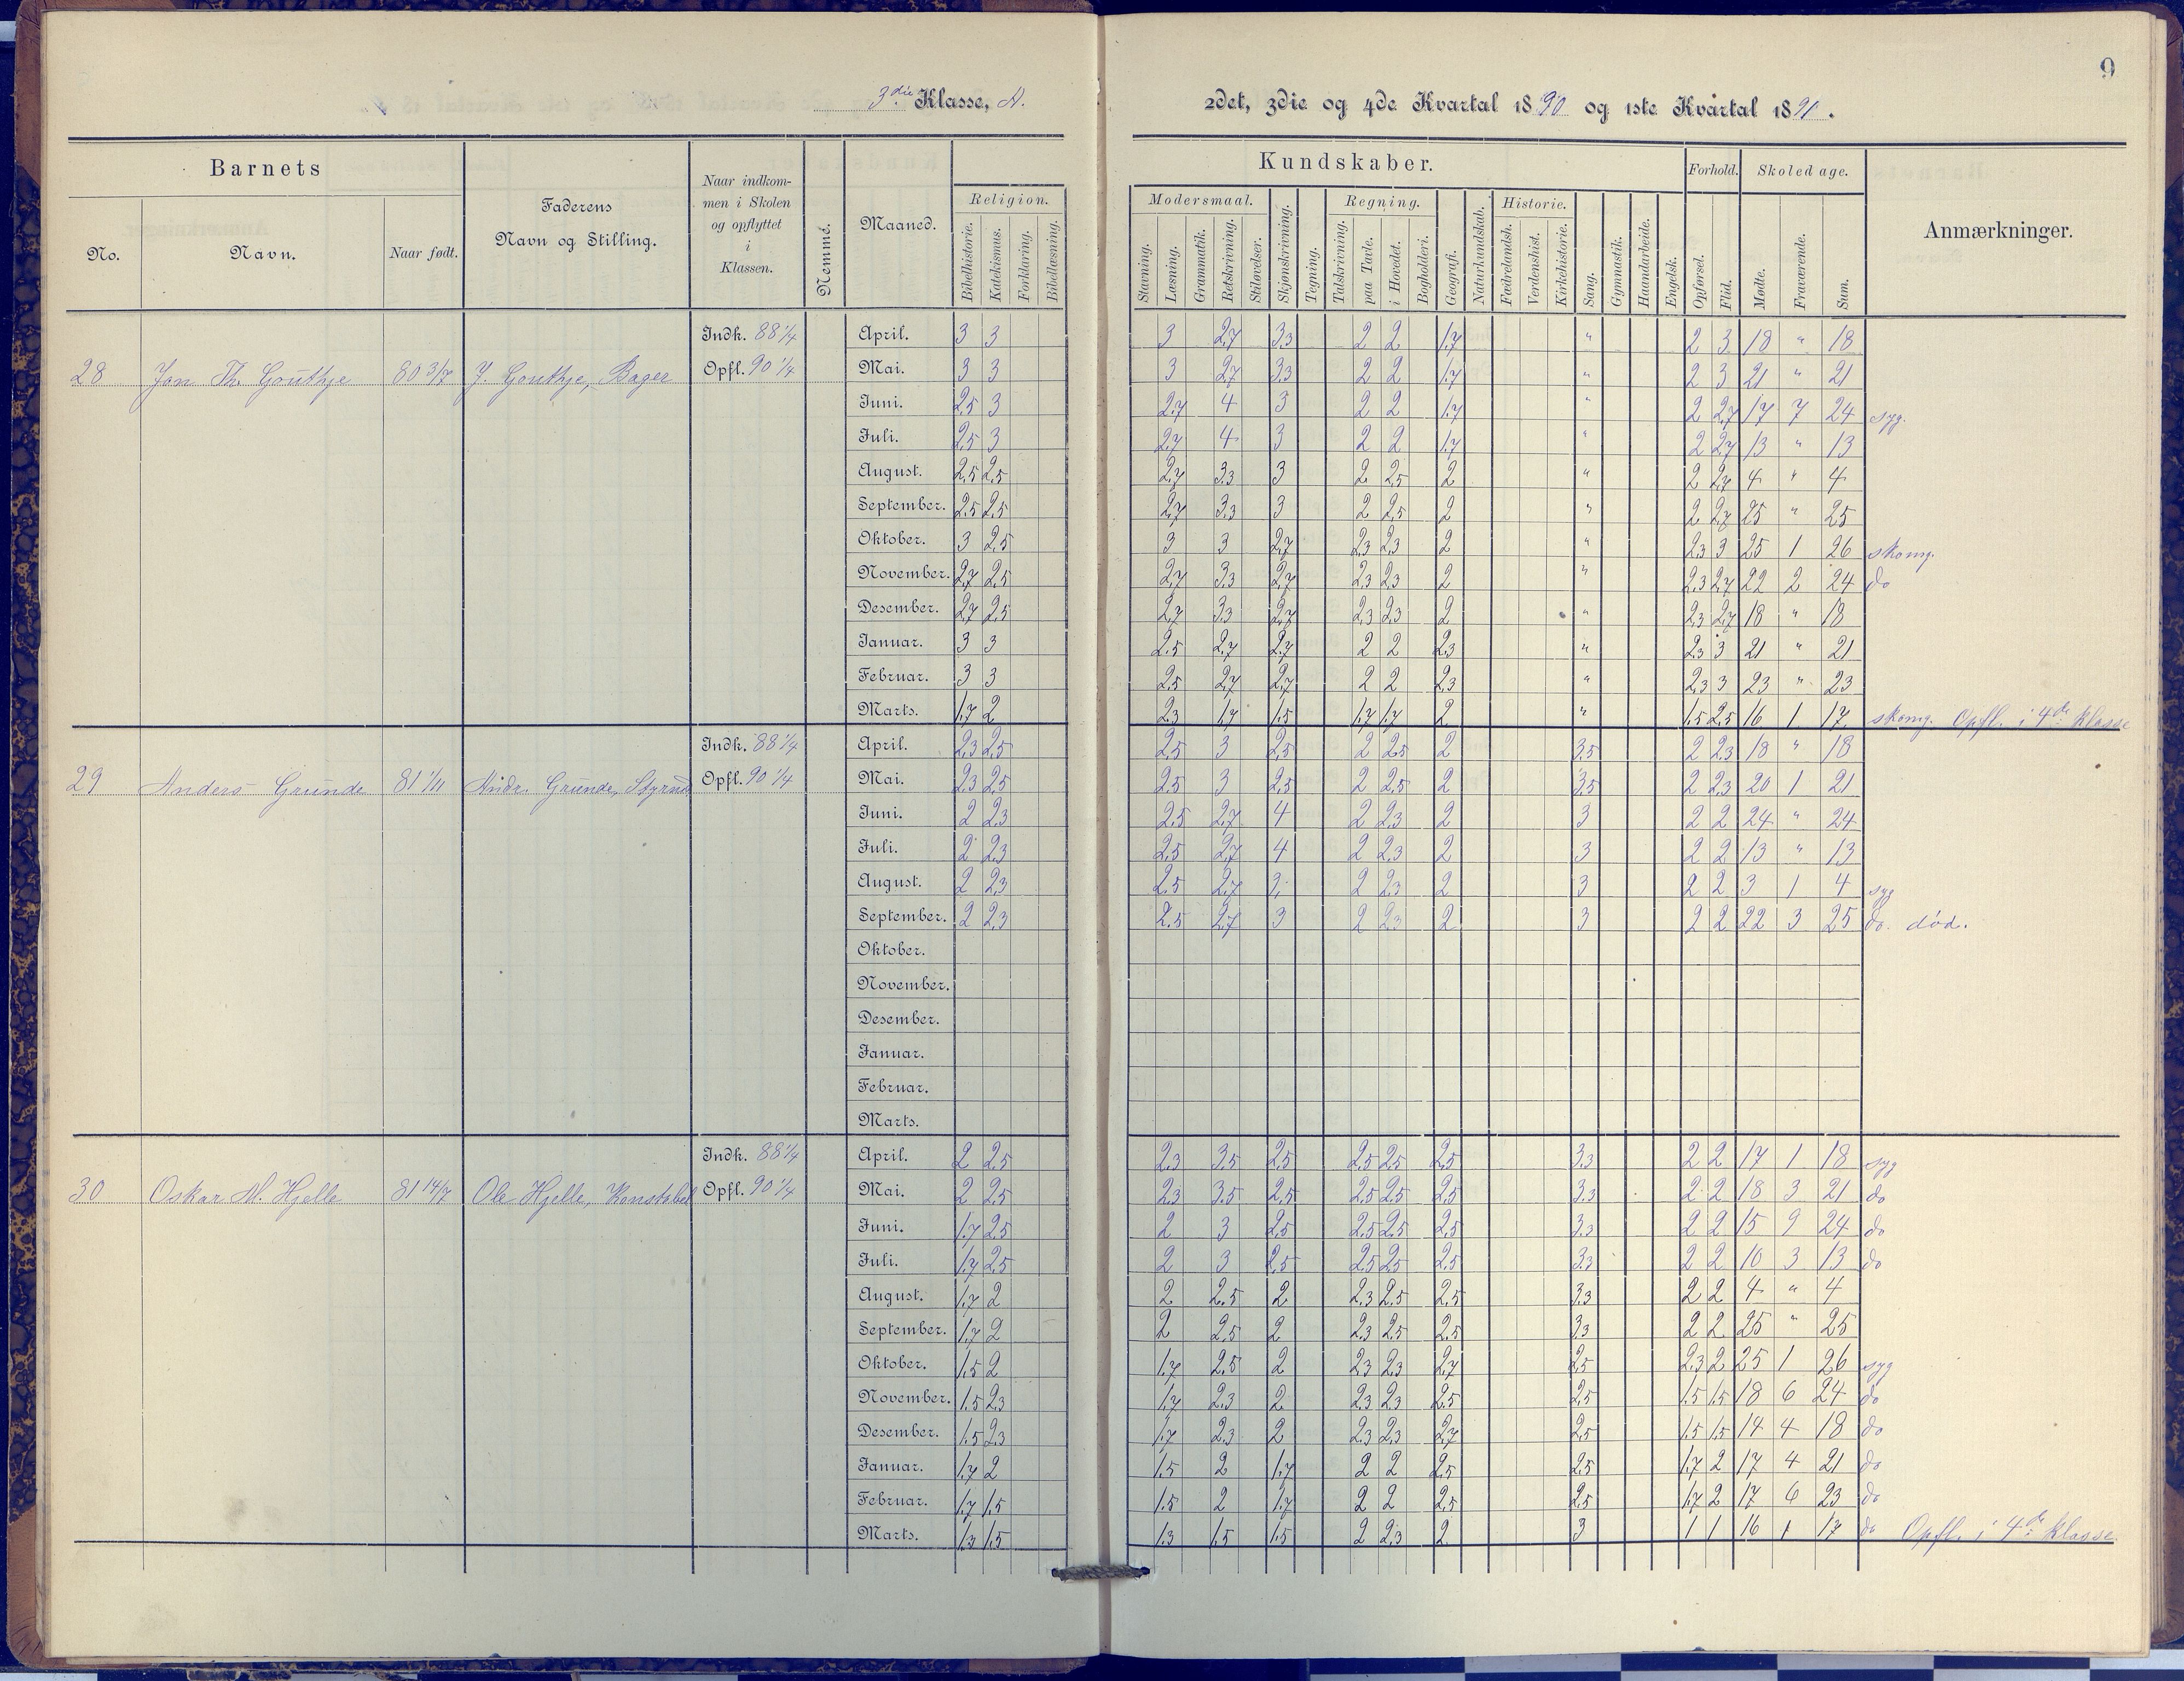 9
3die Klasse, A.
2det, 3die og 4de Kvartal 1890 og 1ste Kvartal 1891.
Barnets
No.
Navn.
Naar født.
Faderens
Navn og Stilling.
Naar indkom-
men i Skolen
og opflyttet
i
Klassen.
Nemme.
Maaned.
Kundskaber.
Religion.
Bibelhistorie.
Katekismus.
Forklaring.
Bibellæsning.
Modersmaal.
Stavning.
Læsning.
Grammatik.
Retskrivning.
Stiløvelser.
Skjønskrivning.
Tegning.
Regning.
Talskrivning.
paa Tavle.
i Hovedet.
Bogholderi.
Geografi.
Naturkundskab.
Historie.
Fædrelandsh.
Verdenshist.
Kirkehistorie.
Sang.
Gymnastik.
Haandarbeide.
Engelsk.
Forhold.
Opførsel.
Flid.
Skoledage.
Mødte.
Fraværende.
Sum.
Anmærkninger.
28 Jon Th. Gouthje 80 3/7 J. Gouthje, Bager
Indk. 88 1/4
Opfl. 90 1/4
April. 3 3 3 2,7 3,3 2 2 1,7 " 2 3 18 " 18
Mai. 3 3 3 2,7 3,3 2 2 1,7 " 2 3 21 " 21
Juni. 2,5 3 2,7 4 3 2 2 1,7 " 2 2,7 17 7 24 syg.
Juli. 2,5 3 2,7 4 3 2 2 1,7 " 2 2,7 13 " 13
August. 2,5 2,5 2,7 3,3 3 2 2,5 2 " 2 2,7 4 " 4
September. 2,5 2,5 2,7 3,3 3 2 2,5 2 " 2 2,7 25 " 25
Oktober. 3 2,5 3 3 2,7 2,3 2,3 2 " 2,3 3 25 1 26 skomg.
November. 2,7 2,5 2,7 3,3 2,7 2,3 2,3 2 " 2,3 2,7 22 2 24 do
Desember. 2,7 2,5 2,7 3,3 2,7 2,3 2,3 2 " 2,3 2,7 18 " 18
Januar. 3 3 2,5 2,7 2,7 2 2 2,3 " 2,3 3 21 " 21
Februar. 3 3 2,5 2,7 2,7 2 2 2,3 " 2,3 3 23 " 23
Marts. 1,7 2 2,3 1,7 1,5 1,7 1,7 2 " 1,5 2,5 16 1 17 skomg. Opfl. i 4de klasse
29 Anders Grunde 81 1/11 Andr. Grunde, Styrmd
Indk. 88 1/4
Opfl. 90 1/4
April. 2,3 2,5 2,5 3 2,5 2 2,5 2 3,5 2 2,3 18 " 18
Mai. 2,3 2,5 2,5 3 2,5 2 2,5 2 3,5 2 2,3 20 1 21
Juni. 2 2,3 2,5 2,7 4 2 2,3 2 3 2 2 24 " 24
Juli. 2 2,3 2,5 2,7 4 2 2,3 2 3 2 2 13 " 13
August. 2 2,3 2,5 2,7 3 2 2,3 2 3 2 2 3 1 4 syg
September. 2 2,3 2,5 2,7 3 2 2,3 2 3 2 2 22 3 25 do. død.
Oktober.
November.
Desember.
Januar.
Februar.
Marts.
30 Oskar M. Hjelle 81 14/7 Ole Hjelle, Konstabel
Indk. 88 1/4
Opfl. 90 1/4
April. 2 2,5 2,3 3,5 2,5 2,5 2,5 2,5 3,3 2 2 17 1 18 syg
Mai. 2 2,5 2,3 3,5 2,5 2,5 2,5 2,5 3,3 2 2 18 3 21 do
Juni. 1,7 2,5 2 3 2,5 2,5 2,5 2,5 3,3 2 2 15 9 24 do
Juli. 1,7 2,5 2 3 2,5 2,5 2,5 2,5 3,3 2 2 10 3 13 do
August. 1,7 2 2 2,5 2 2,3 2,5 2,5 3,3 2 2 4 " 4
September. 1,7 2 2 2,5 2 2,3 2,5 2,5 3,3 2 2 25 " 25
Oktober. 1,5 2 1,7 2,5 2 2,3 2,3 2,7 2,5 2,3 2 25 1 26 syg
November. 1,5 2,3 1,7 2,3 2 2,3 2,3 2,5 2,5 1,5 1,5 18 6 24 do
Desember. 1,5 2,3 1,7 2,3 2 2,3 2,3 2,7 2,5 1,5 1,5 14 4 18 do
Januar. 1,7 2 1,5 2 1,7 2 2 2,5 2,5 1,7 2 17 4 21 do
Februar. 1,7 1,5 1,5 2 1,7 2 2 2,5 2,5 1,7 2 17 6 23 do
Marts. 1,3 1,5 1,3 1,5 1,5 2 2,3 2 3 1 1 16 1 17 do Opfl. i 4de klasse